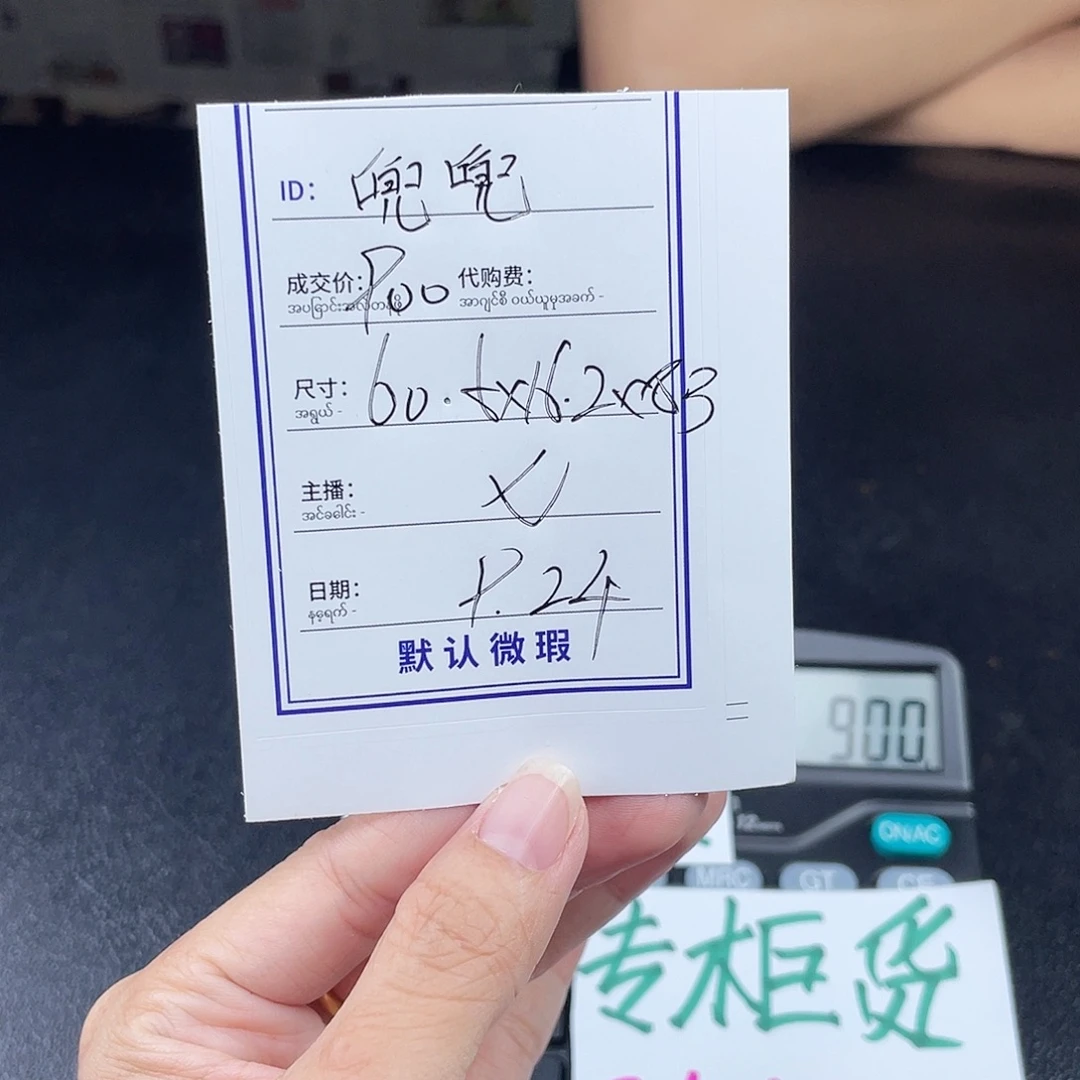 ID: 兜兜
成交价: 900 代购费:
အပြောင်းအလဲတန်ဖိုး အာဂျင်စီ ဝယ်ယူမှုအခက် -
尺寸: 60.5x16.2x8.3
အရွယ် -
主播:
အင်ခခေါင်း -
日期: 9.24
နေ့ရက် -
默认微瑕
900.
12
ON/AC
MRC GT CE
专柜货